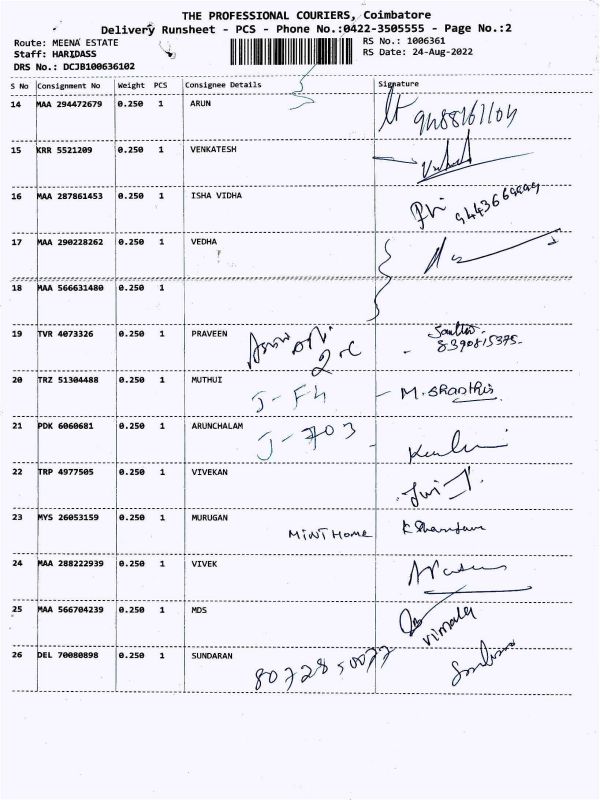 THE PROFESSIONAL COURIERS, Coimbatore
Delivery Runsheet - PCS - Phone No.:0422-3505555 - Page No.:2
Route: MEENA ESTATE
RS No.: 1006361
Staff: HARIDASS
RS Date: 24-Aug-2022
DRS No.: DCJB100636102
S No Consignment No Weight PCS Consignee Details Signature
14 MAA 294472679 0.250 1 ARUN 9488161104
15 KRR 5521209 0.250 1 VENKATESH
16 MAA 287861453 0.250 1 ISHA VIDHA
17 MAA 290228262 0.250 1 VEDHA
18 MAA 566631480 0.250 1
19 TVR 4073326 0.250 1 PRAVEEN
8390815375-
20 TRZ 51304488 0.250 1 MUTHUI
J-F4 M. Shanthi
21 PDK 6060681 0.250 1 ARUNCHALAM
J-703
22 TRP 4977505 0.250 1 VIVEKAN
23 MYS 26053159 0.250 1 MURUGAN
MINT HOME
24 MAA 288222939 0.250 1 VIVEK
25 MAA 566704239 0.250 1 MDS
Vimala
26 DEL 70080898 0.250 1 SUNDARAN
8072850077